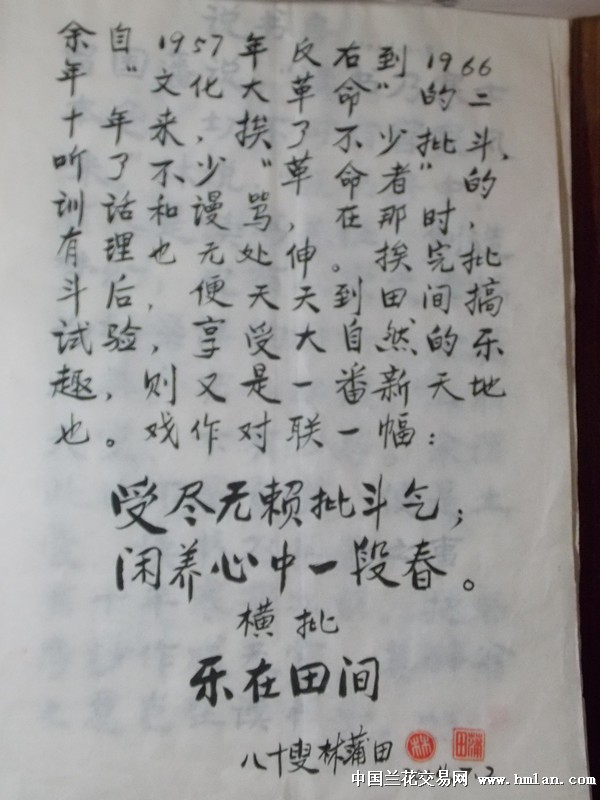 余自1957年反右到1966
年“文化大革命”的二
十年来，挨了不少批斗，
听了不少“革命者”的
训话和谩骂，在那时，
有理也无处伸。挨完批
斗后，便天天到田间搞
试验，享受大自然的乐
趣，则又是一番新天地
也。戏作对联一幅：
受尽无赖批斗气；
闲养心中一段春。
横批
乐在田间
八十叟林蒲田
林
蒲田
中国兰花交易网 www.hmlan.com